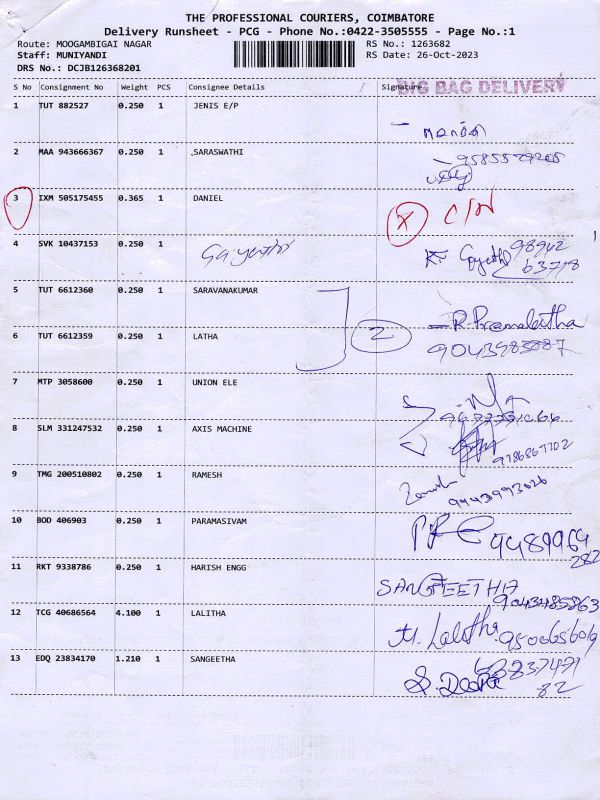 THE PROFESSIONAL COURIERS, COIMBATORE
Delivery Runsheet - PCG - Phone No.:0422-3505555 - Page No.:1
Route: MOOGAMBIGAI NAGAR RS No.: 1263682
Staff: MUNIYANDI RS Date: 26-Oct-2023
DRS No.: DCJB126368201
BIG BAG DELIVERY
S No Consignment No Weight PCS Consignee Details Signature
1 TUT 882527 0.250 1 JENIS E/P
2 MAA 943666367 0.250 1 SARASWATHI
3 IXM 505175455 0.365 1 DANIEL X
4 SVK 10437153 0.250 1 Gayathri 98942
63718
5 TUT 6612360 0.250 1 SARAVANAKUMAR R. Premalatha
6 TUT 6612359 0.250 1 LATHA 2
7 MTP 3058600 0.250 1 UNION ELE
8 SLM 331247532 0.250 1 AXIS MACHINE
9786867702
9 TMG 200510802 0.250 1 RAMESH
9943993626
10 BOD 406903 0.250 1 PARAMASIVAM 9489964
282
11 RKT 9338786 0.250 1 HARISH ENGG SANGEETHA
9043485863
12 TCG 40686564 4.100 1 LALITHA M. Lalitha
13 EDQ 23834170 1.210 1 SANGEETHA
82